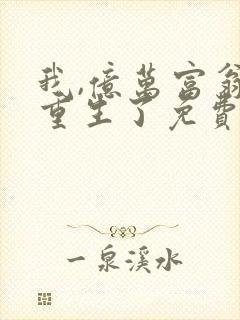 我,億萬富翁
重生了免費
一泉溪水